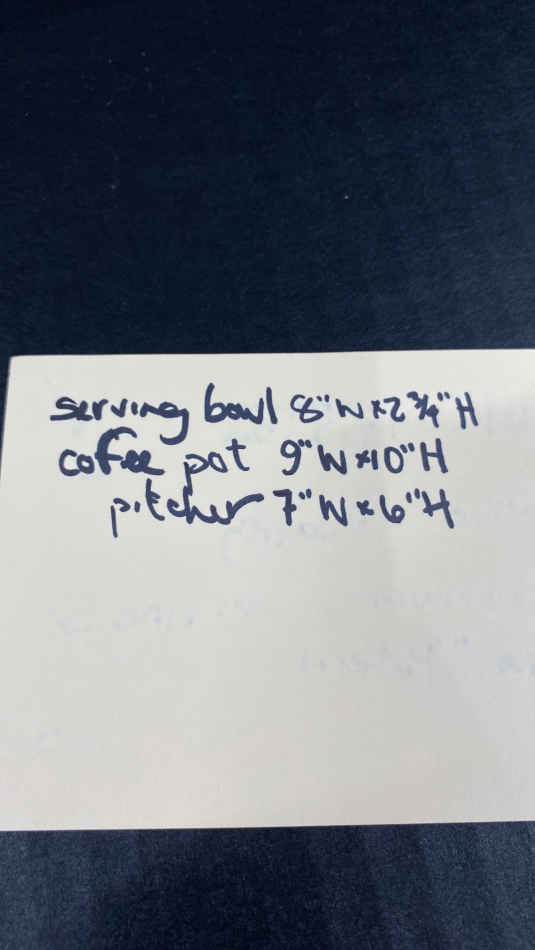 serving bowl 8"W x 2 3/4" H
coffee pot 9"W x 10"H
pitcher 7"W x 6"H